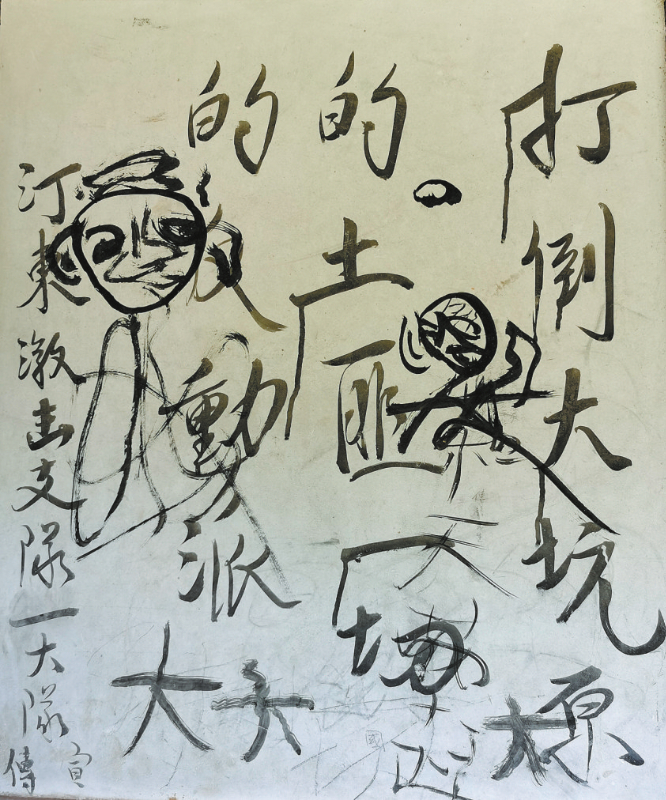 打倒大坑原
的土匪
天
的反動派
大
大
汀東激击支隊一大隊宣傳